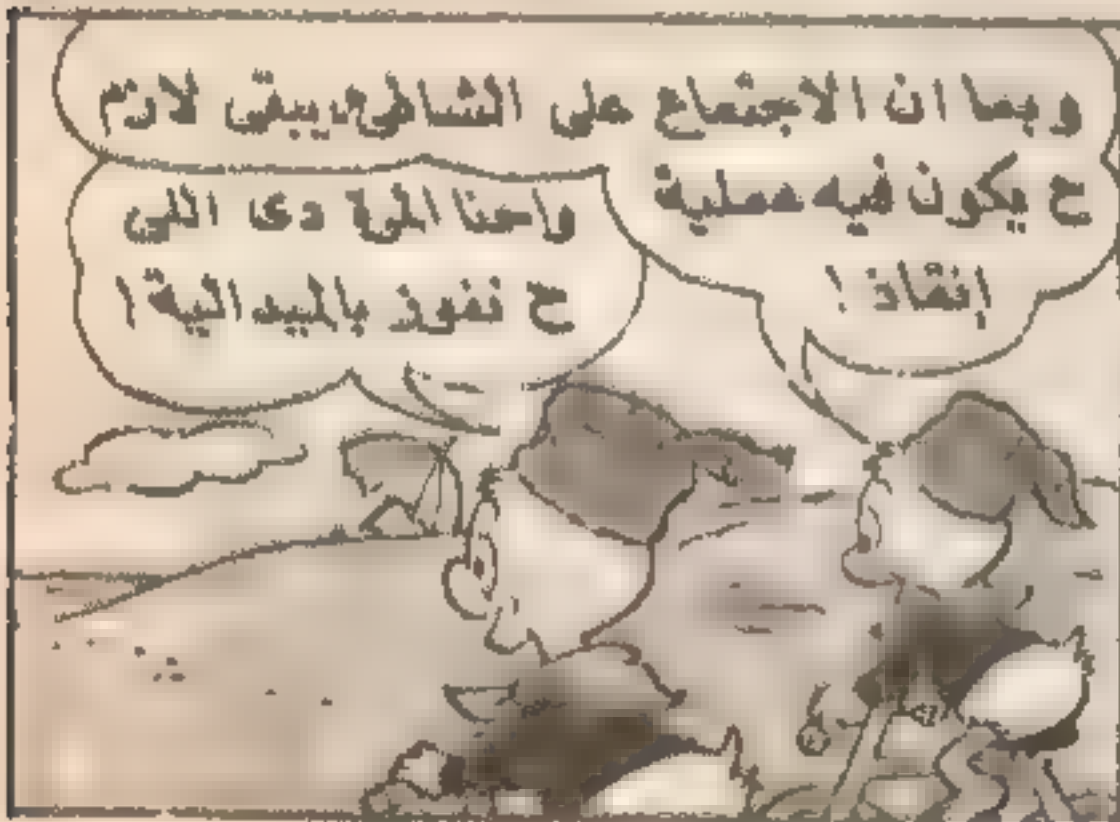 وبما ان الاجتماع على الشاطىء، يبقى لازم
ح يكون فيه عملية
إنقاذ !
واحنا المرة دى اللى
ح نفوز بالميدالية !